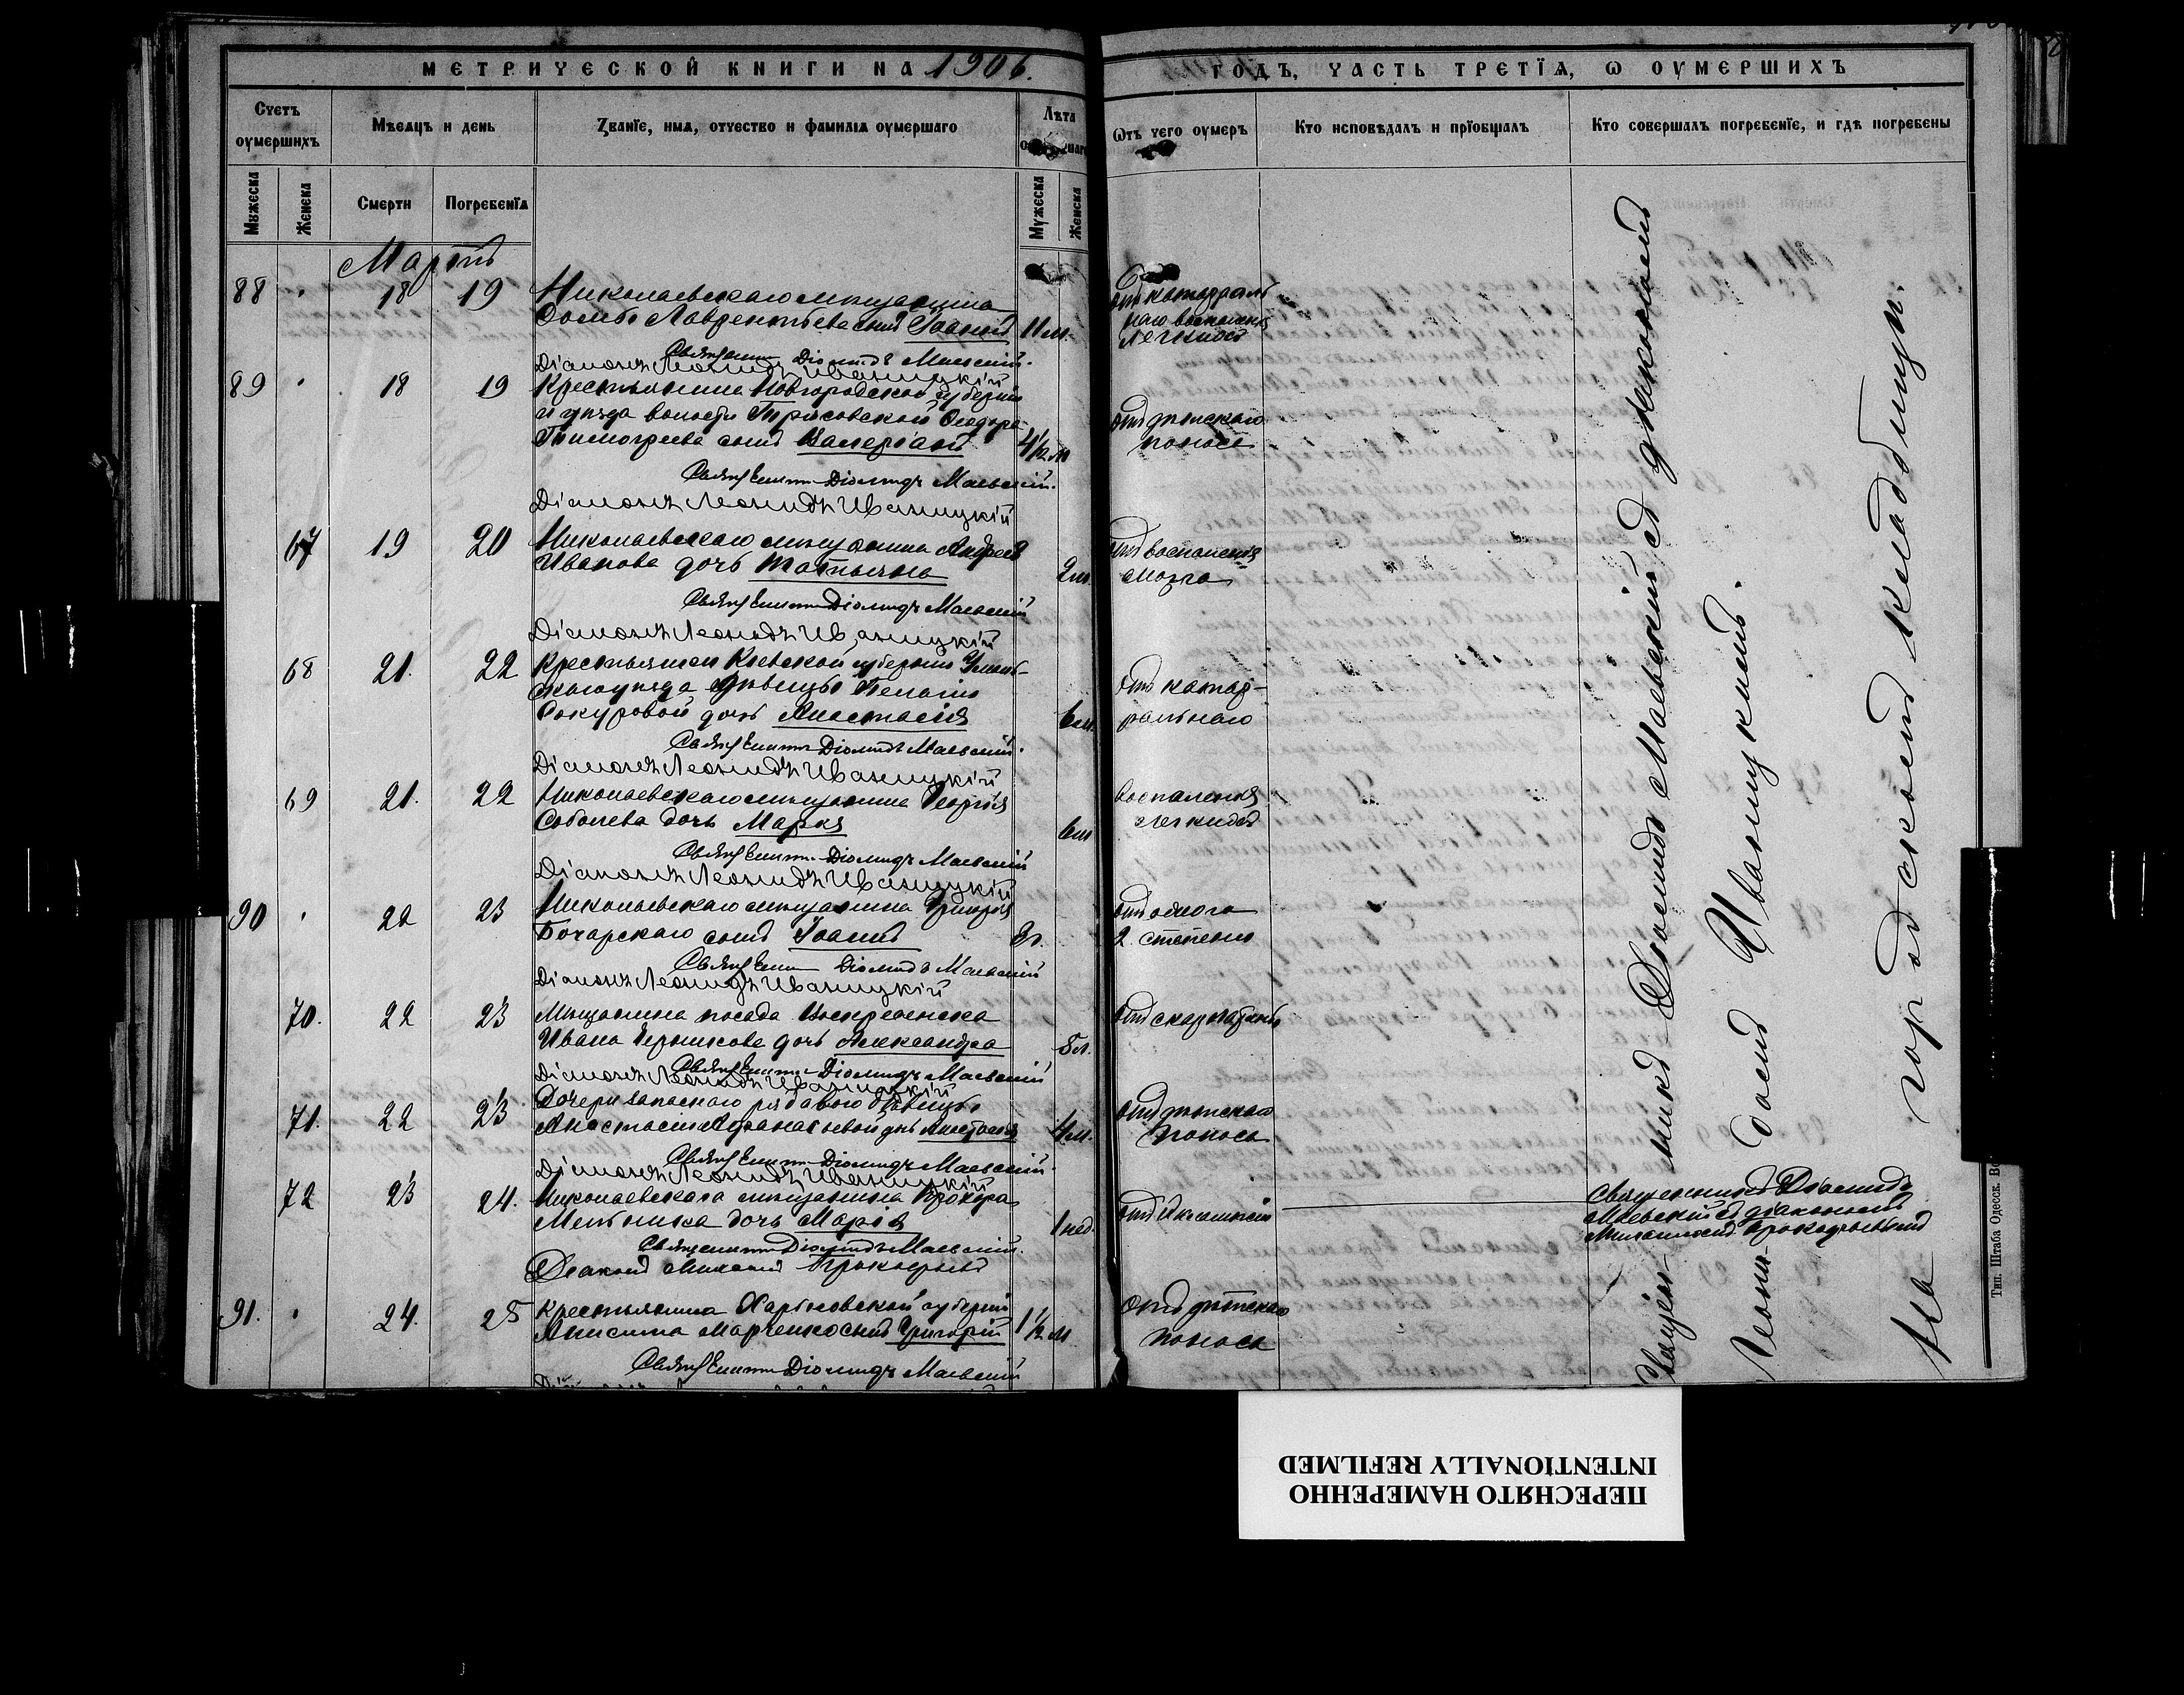 МЕТРИЧЕСКОЙ КНИГИ НА 1906.
ГОДЪ, ЧАСТЬ ТРЕТІЯ, Ѡ ОУМЕРШИХЪ
Счетъ оумершихъ
Мѣсяцъ и день
Званїе, имя, отчество и фамилія оумершаго
Лѣта
Ѡтъ чего оумеръ
Кто исповѣдалъ и прїобщалъ
Кто совершалъ погребенїе, и гдѣ погребены
Мужеска
Женска
Смерти
Погребенїя
Мужеска
Женска
Мартъ
88 18 19 Николаевскаго мѣщанина
Лаврентьева сынъ Іоаннъ 11 м. отъ катарраль
наго воспаленія
легкихъ
Священникъ Діомидъ Маевскій.
Діаконъ Леонидъ Иваницкій
89 18 19 Крестьянина Новгородской губерніи
и уѣзда волости Ѳеодора
Тимоѳеева сынъ Валеріанъ 4½ м отъ дѣтскаго
поноса
Священникъ Діомидъ Маевскій.
Діаконъ Леонидъ Иваницкій
67 19 20 Николаевскаго мѣщанина Андрея
Иванова дочь Татьяна 2 м. отъ воспаленія
мозга
Священникъ Діомидъ Маевскій
Діаконъ Леонидъ Иваницкій
68 21. 22 Крестьянки Кіевской губерніи Уман-
скаго уѣзда дѣвицы Пелагіи
дочь Анастасія 6 м. отъ катар-
ральнаго
Священникъ Діомидъ Маевскій.
Діаконъ Леонидъ Иваницкій
69 21. 22 Николаевскаго мѣщанина Георгія
Соболева дочь Марія 6 м воспаленія
легкихъ
Священникъ Діомидъ Маевскій
Діаконъ Леонидъ Иваницкій
90 22 23 Николаевскаго мѣщанина Григорія
Бочарскаго сынъ Іоаннъ 3 г. отъ ожога
2 степени
Священникъ Діомидъ Маевскій
Діаконъ Леонидъ Иваницкій
70. 22 23 Мѣщанина посада Воскресенска
Ивана дочь Александра 5 л. отъ скарлатины
Священникъ Діомидъ Маевскій
Діаконъ Леонидъ Иваницкій
71. 22 23 Дочери запаснаго рядового дѣвицы
Анастасіи Аѳанасьевой дочь Анастасія 4 м. отъ дѣтскаго
поноса
Священникъ Діомидъ Маевскій.
Діаконъ Леонидъ Иваницкій
72 23 24. Николаевскаго мѣщанина Прохора
Мельника дочь Марія 1 нед. отъ эклампсіи
Священникъ Діомидъ Маевскій.
Діаконъ Михаилъ
Священникъ Діомидъ
Маевскій съ діакономъ
Михаиломъ
91. 24. 25 Крестьянина Харьковской губерніи
Анисима Марченко сынъ Григорій 1½ м отъ дѣтскаго
поноса
Священникъ Діомидъ Маевскій
Священ-никъ Діомидъ Маевскій съ діакономъ
Леони-домъ Иваницкимъ.
На городскомъ кладбищѣ.
Тип. Штаба Одесск. Во
ПЕРЕСНЯТО НАМЕРЕННО
INTENTIONALLY REFILMED